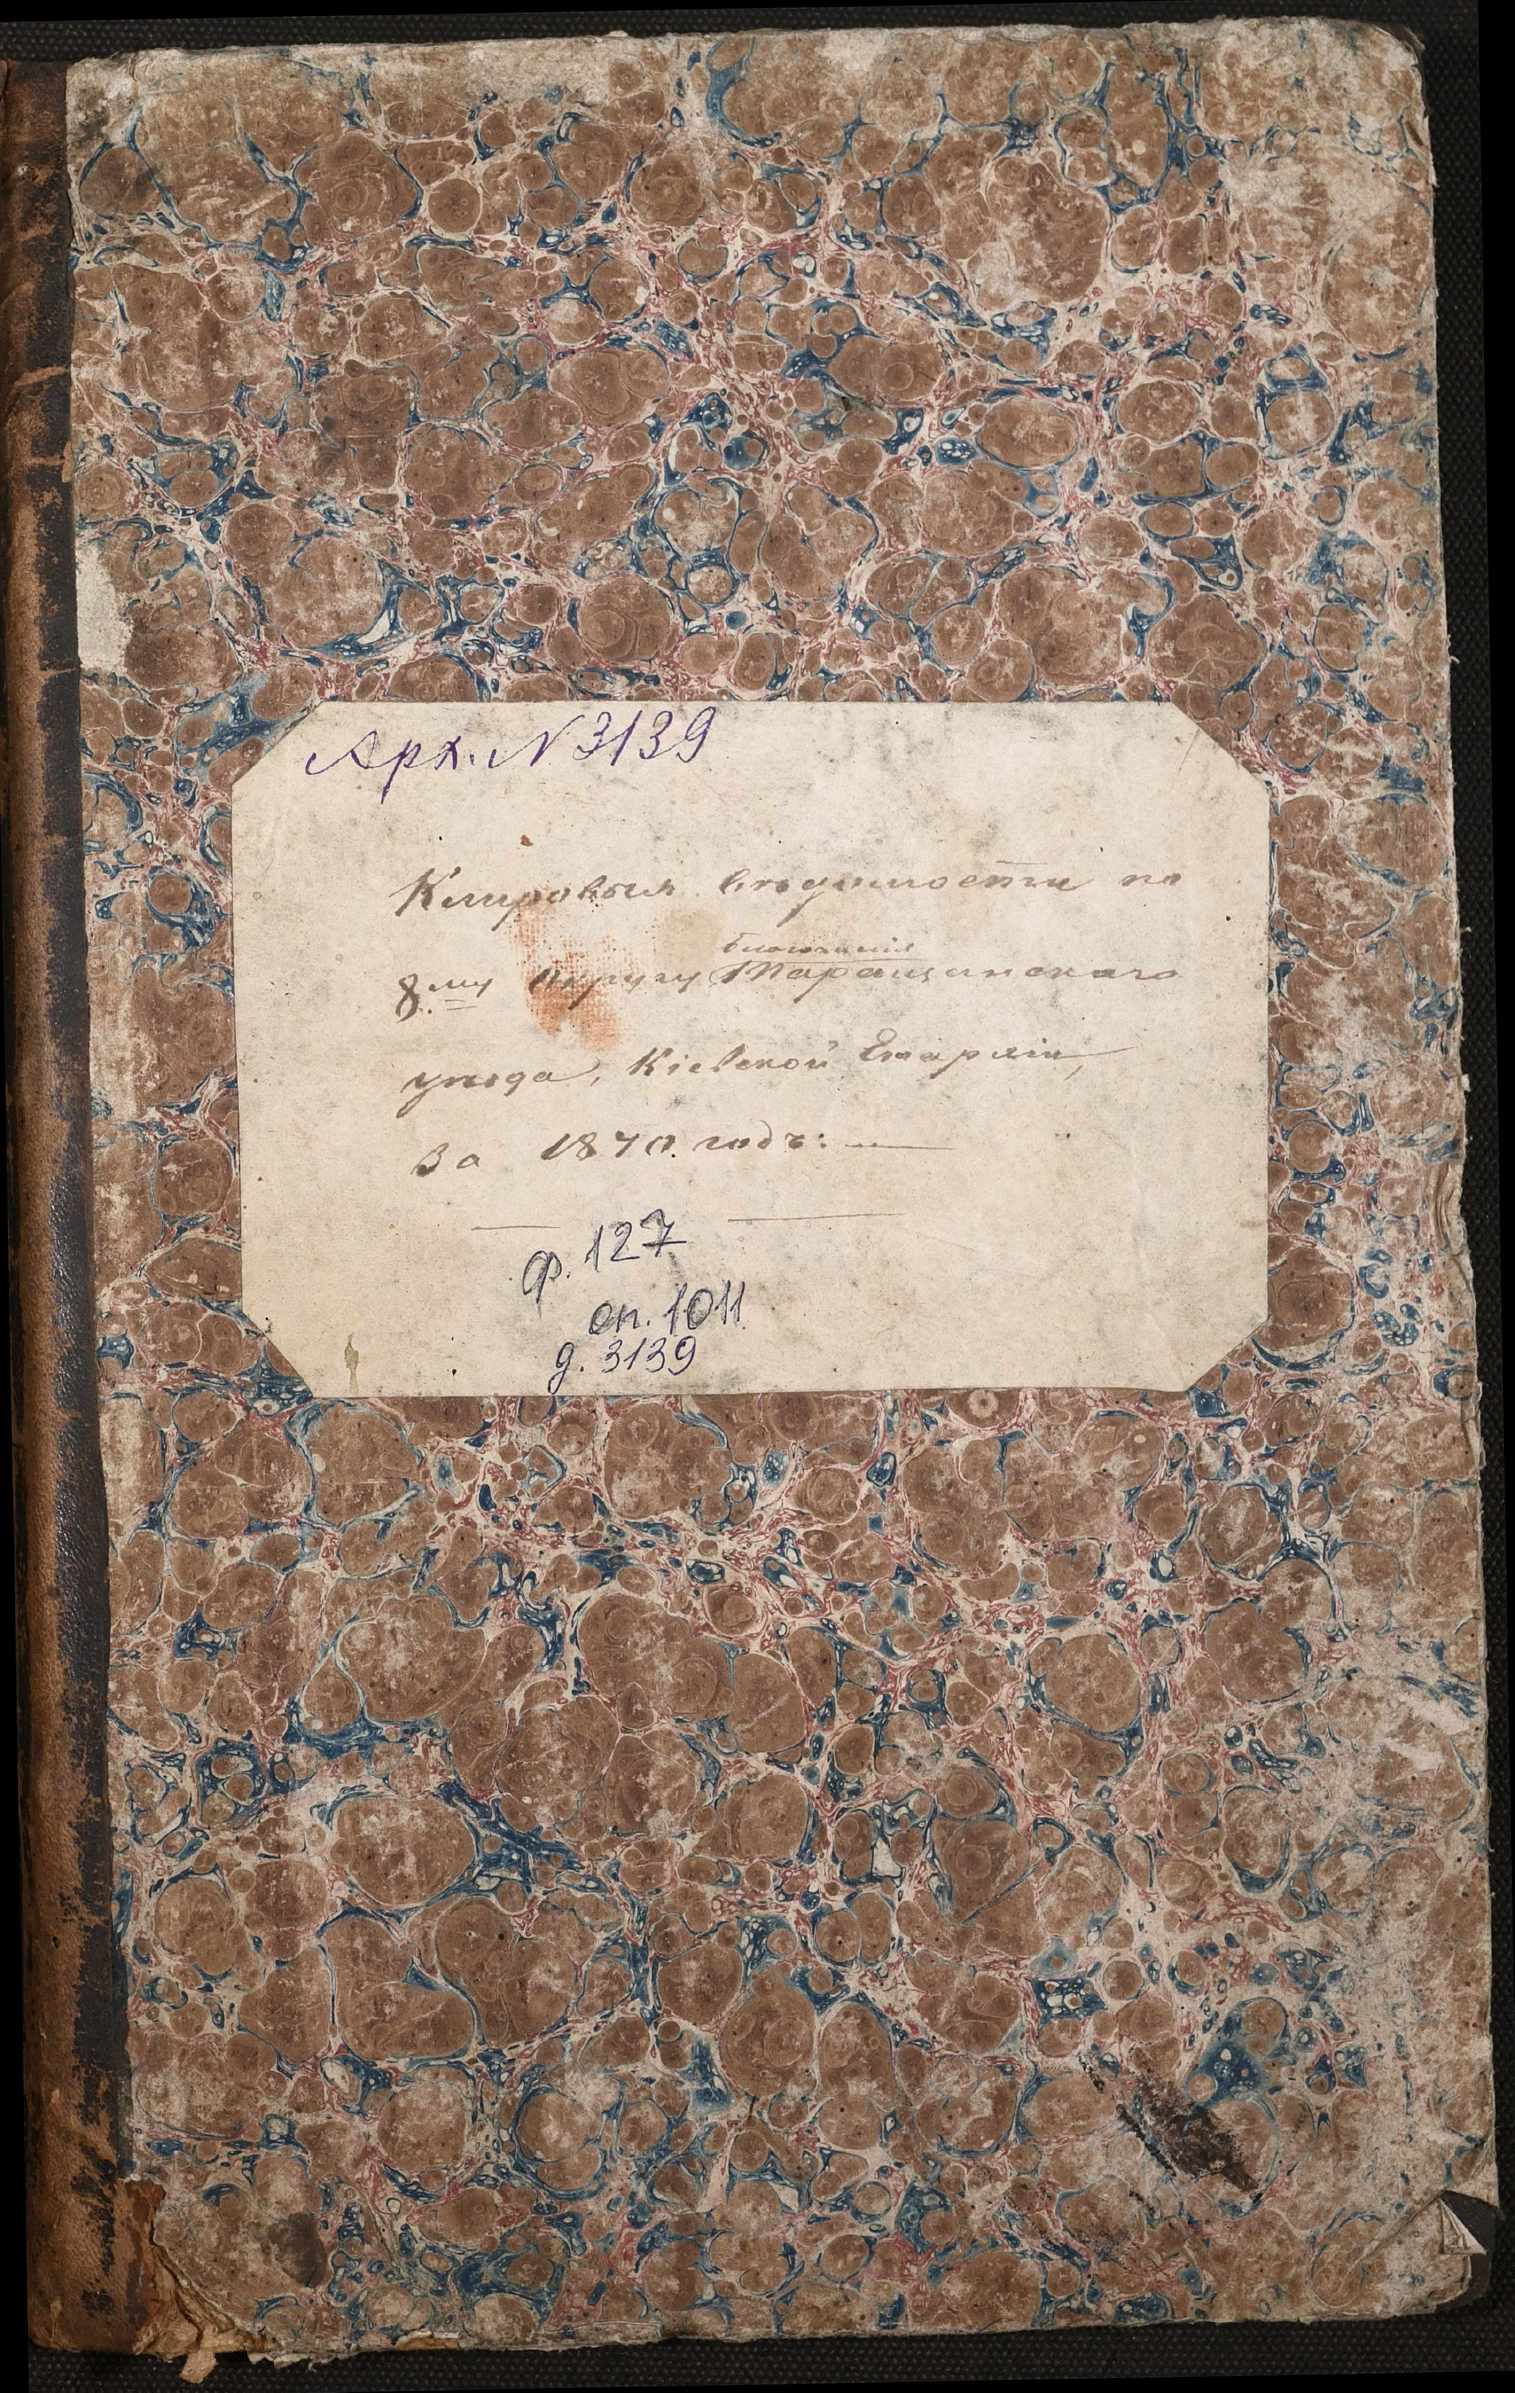 Арх. N 3139
Клировыя вѣдомости по
благочинія
8.му округу Таращанскаго
уѣзда, Кіевской Епархіи,
за 1870. годъ: —
ф. 127
оп. 1011
д. 3139